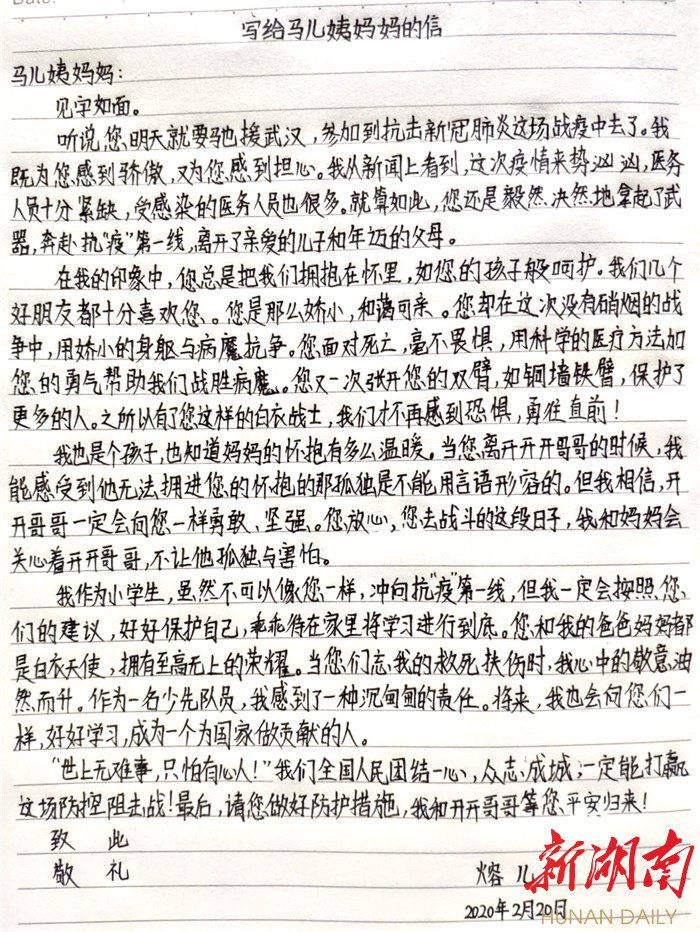 写给马儿姨妈妈的信
马儿姨妈妈：
见字如面。
听说您明天就要驰援武汉，参加到抗击新冠肺炎这场战疫中去了。我
既为您感到骄傲，又为您感到担心。我从新闻上看到，这次疫情来势汹汹，医务
人员十分紧缺，受感染的医务人员也很多。就算如此，您还是毅然决然地拿起了武
器，奔赴抗“疫”第一线，离开了亲爱的儿子和年迈的父母。
在我的印象中，您总是把我们拥抱在怀里，如您的孩子般呵护。我们几个
好朋友都十分喜欢您、。您是那么娇小，和蔼可亲。您却在这次没有硝烟的战
争中，用娇小的身躯与病魔抗争。您面对死亡，毫不畏惧，用科学的医疗方法加
您的勇气帮助我们战胜病魔。您又一次张开您的双臂，如铜墙铁臂，保护了
更多的人。之所以有了您这样的白衣战士，我们才不再感到恐惧，勇往直前！
我也是个孩子，也知道妈妈的怀抱有多么温暖。当您离开开开哥哥的时候，我
能感受到他无法拥进您的怀抱的那孤独是不能用言语形容的。但我相信，开
开哥哥一定会向您一样勇敢、坚强、。您放心，您去战斗的这段日子，我和妈妈会
关心着开开哥哥，不让他孤独与害怕。
我作为小学生，虽然不可以像您一样，冲向抗“疫”第一线，但我一定会按照您
们的建议，好好保护自己，乖乖待在家里将学习进行到底。您和我的爸爸妈妈都
是白衣天使，拥有至高无上的荣耀。当您们忘我的救死扶伤时，我心中的敬意油
然而升。作为一名少先队员，我感到了一种沉甸甸的责任。将来，我也会向您们一
样，好好学习，成为一个为国家做贡献的人。
“世上无难事，只怕有心人！”我们全国人民团结一心，众志成城，一定能打赢
这场防控阻击战！最后，请您做好防护措施，我和开开哥哥等您平安归来！
致 此
敬 礼
熔儿
2020年2月20日
新湖南
HUNAN DAILY